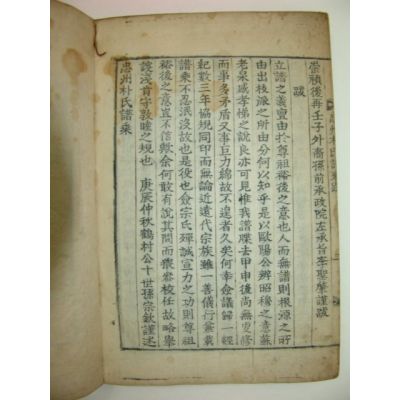 崇禎後再壬子外裔孫前承政院左承旨李聖肇謹跋
跋
立譜之義亶由於尊祖裕後之意也人而無譜則根源之所
由出枝派之所由分何以知乎是以歐陽公辨昭穆之意蘇
老泉感孝悌之說良亦可見惟我譜牒去甲申後尚
而事多矛盾又事巨力綿故不遑者久矣何幸僉議歸一經
起數三年協規同印而無論近遠代宗族雖一善儀行無載
譜乘不忍泯沒故也是役也僉宗氏殫誠宣力之功則尊祖
裕後之意豈不信歟余何敢有說其間而猥忝校任故略舉
淺肯守敦睦之規也 庚辰仲秋鶴村公十世孫宗欽謹述
忠州朴氏譜乘